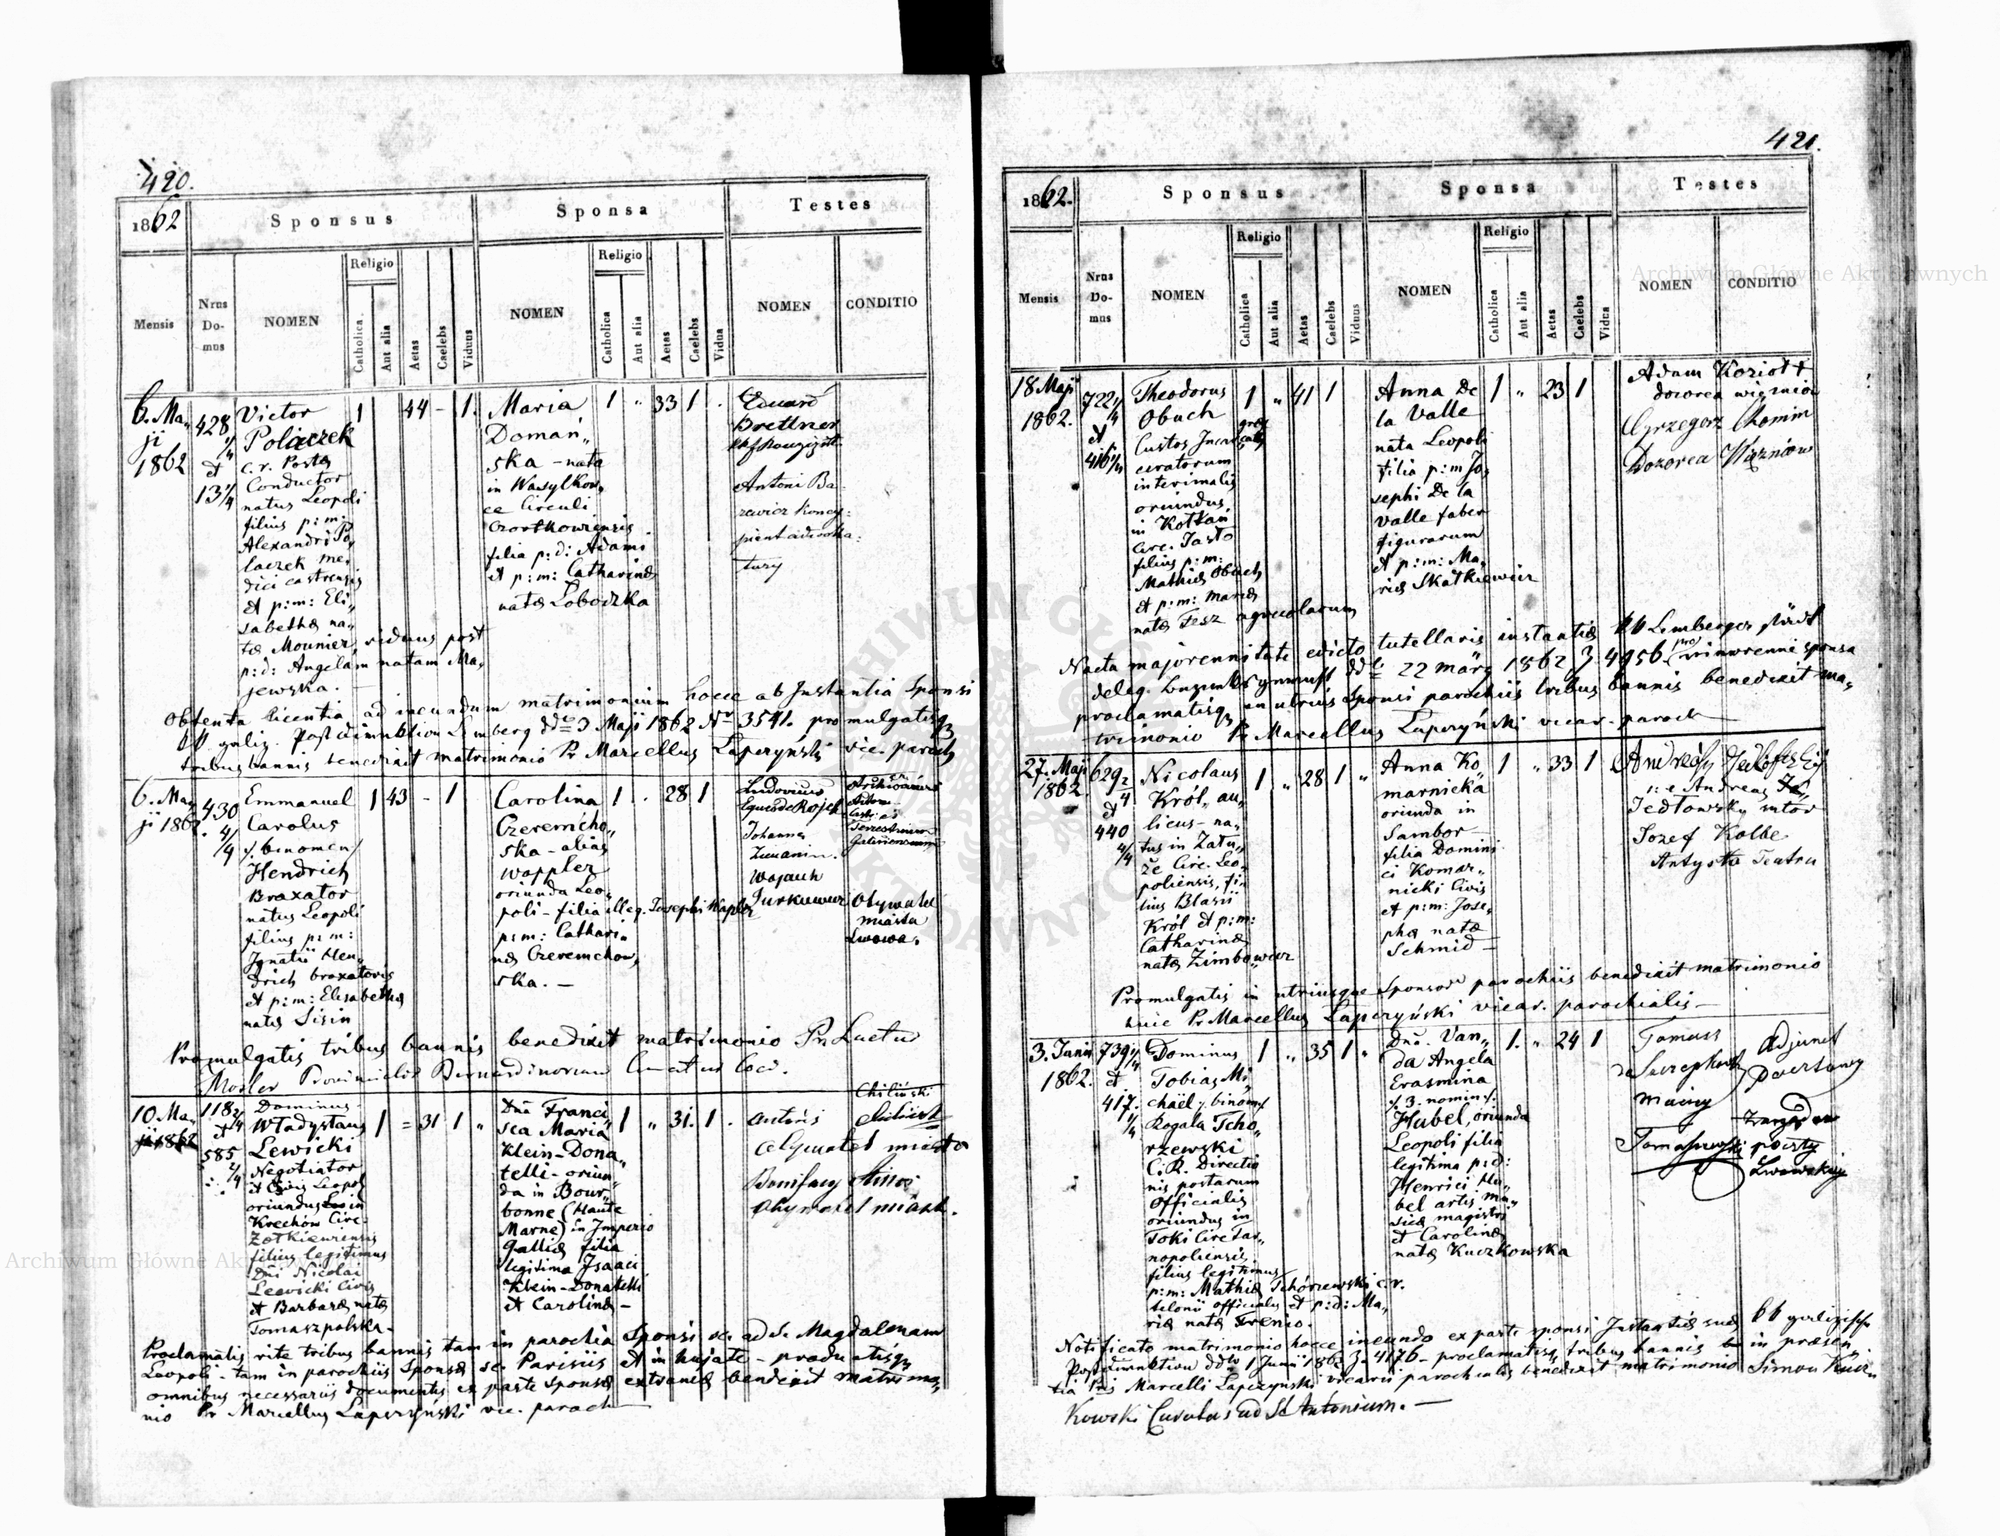 420.
1862
Sponsus
Sponsa
Testes
Mensis
Nrus Do-mus
NOMEN
Religio
Catholica
Aut alia
Aetas
Caelebs
Viduus
NOMEN
Religio
Catholica
Aut alia
Aetas
Caelebs
Vidua
NOMEN
CONDITIO
6. Ma„
ji
1862
428
1/4
et
13 1/4
Victor
Polaczek
c. r. Postæ
Conductor
natus Leopoli
filius p: m:
Alexandri Po„
laczek me„
dici castrensis
et p: m: Eli„
sabethæ na„
tæ Mounier, viduus post
p: d: Angelam natam Ma„
jewska. —
1
44
-
1.
Maria
Domań„
ska - nata
in Wasylkow„
ce Circuli
Czortkowiensis
filia p: d: Adami
et p: m: Catharinæ
natæ Łoboczka
1
„
33
1
.
Eduard
Brettner
Antoni Ba-
zewicz koncy-
pient adwoka-
tury
Obtenta licentia ad ineundum matrimonium hocce ab Instantia Sponsi
kk galiz. Postdirection Lemberg ddto 3 Maji 1862 Nr 3541. promulgatisq
tribus bannis benedixit matrimonio Pr Marcellus Łapczyński vic. paroch
6. Ma„
ji 1862.
430
4/4
Emmanuel
Carolus
/: binomen/
Hendrich
Braxator
natus Leopoli
filius p: m:
Ignatii Hen„
drich braxatoris
et p: m: Elisabethæ
natæ Sisin
1
43
-
1
Carolina
Czeremcho„
ska - alias
Woppler
oriunda Leo„
poli - filia illeg. Josephi Wapler
p: m: Cathari„
næ Czeremchow„
ska. —
1
.
28
1
Ludovicus
Eques de Rojek
Johannes
Wojciech
Jurkiewicz
Obywatel
miasta
Lwowa.
Promulgatis tribus bannis benedixit matrimonio Pr
Mosler Provincialis Bernardinorum Curatus loci.
10. Ma„
ji 1862
118 2/4
et
585
4/4
Dominus
Władysław
Lewicki
Negotiator
et Civis Leopol
oriundus in
Krechów Circ.
Żołkiewiensis
filius legitimus
Dni Nicolai
Lewicki Civis
et Barbaræ natæ
Tomaszpolska -
1
=
31
1
„
Dna Franci„
sca Maria
Klein-Dona„
telli - oriun„
da in Bour„
bonne (Haute
Marne) in Imperio
Galliæ filia
legitima Isaaci
Klein-Donatelli
et Carolinæ -
1
„
31.
1.
.
Antoni
Chiliński
Obywatel miasta
Bonifacy
Obywatel miast.
Proclamatis rite tribus bannis tam in parochia Sponsi sc. ad S. Magdalenam
Leopoli - tam in parochiis Sponsæ sc. Parisiis et in hujate - productisq
omnibus necessariis documentis ex parte Sponsæ extraneæ benedixit matrimo„
nio Pr Marcellus Łapczyński vic. paroch
421.
1862.
Sponsus
Sponsa
Testes
Mensis
Nrus Do-mus
NOMEN
Religio
Catholica
Aut alia
Aetas
Caelebs
Viduus
NOMEN
Religio
Catholica
Aut alia
Aetas
Caelebs
Vidua
NOMEN
CONDITIO
18 Maji
1862.
722 1/4
et
416 1/4
Theodorus
Obuch
Custos Incar
ceratorum
interimalis
oriundus
in Kotłań
Circ. Jasło
filius p: m:
Mathiæ Obuch
et p: m: Mariæ
natæ Fesz agricolarum
1
„
41
1
Anna De
la Valle
nata Leopoli
filia p: m Jo„
sephi De la
Valle faber
figurarum
et p: m: Ma„
riæ Skałkiewicz
1
„
23
1
Adam Kozioł
dozorca więzniów
Grzegorz Chomin
Dozorca Więzniów
Nacta majorennitate edicto tutellaris instantiæ kk Lemberger städt
deleg. Bezirksgericht ddto 22 März 1862 Z. 4956 pro minorenni sponsa
proclamatisq in utrius Sponsi parochiis tribus bannis benedixit ma„
trimonio Pr Marcellus Łapczyński vicar. paroch
27. Maji
1862.
629 2/4
et
440
4/4
Nicolaus
Król, au„
licus - na„
tus in Zatu„
że Circ. Leo„
poliensis, fi„
lius Blasii
Król et p: m:
Catharinæ
natæ Zimbowicz
1
„
28
1
„
Anna Ko„
marnicka
oriunda in
Sambor
filia Domini
ci Komar„
nicki Civis
et p: m: Jose„
phæ natæ
Schmid —
1
„
33
1
Jedłowski
Jozef Kolbe
Artysta Teatru
Promulgatis in utriusque Sponsor parochiis benedixit matrimonio
huic Pr Marcellus Łapczyński vicar. parochialis —
3. Junii
1862.
739 1/4
et
417.
1/4
Dominus
Tobias Mi„
chaël /: binom/
Rogala Tcho„
rzewski
C. R. Directio
nis postarum
Officialis
oriundus in
Toki Circ Tar„
nopoliensis,
filius legitimus
p: m: Mathiæ Tchórzewski c. r.
telonii officialis et p: d: Ma„
riæ natæ Trenio.
1
„
35
1
„
Dna. Van„
da Angela
Erasmina
/: 3. nomin /.
Hubel, oriunda
Leopoli filia
legitima p: d:
Henrici Hu„
bel artis mu„
sicæ magistri
et Carolinæ
natæ Kuczkowska
1.
„
24
1
Tomasz
Adjunct
Tomaszewski
poczty
Lwowskiej
Notificato matrimonio hocce ineundo ex parte sponsi Instantiæ suæ kk galizische
Postdirektion ddto 1 Junii 1862 Z. 4176 - proclamatisq tribus bannis in præsen
tia Pris Marcelli Łapczyński vicarii parochialis benedixit matrimonio Simon Kucz
kowski Curatus ad St Antonium. —
Archiwum Główne Akt Dawnych
Archiwum Główne Akt Dawnych
ARCHIWUM GŁÓWNE AKT DAWNYCH